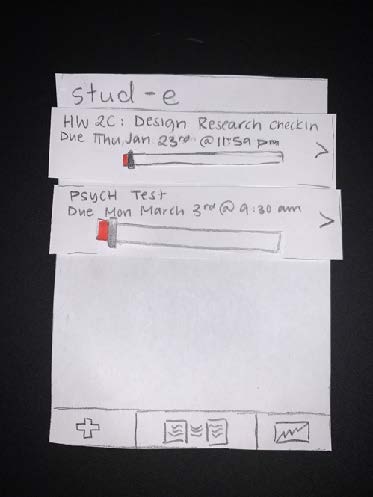 stud-e
HW 2C: Design Research checkin
Due Thu Jan 23rd @ 11:59 pm
PSYCH Test
Due Mon March 3rd @ 9:30 am